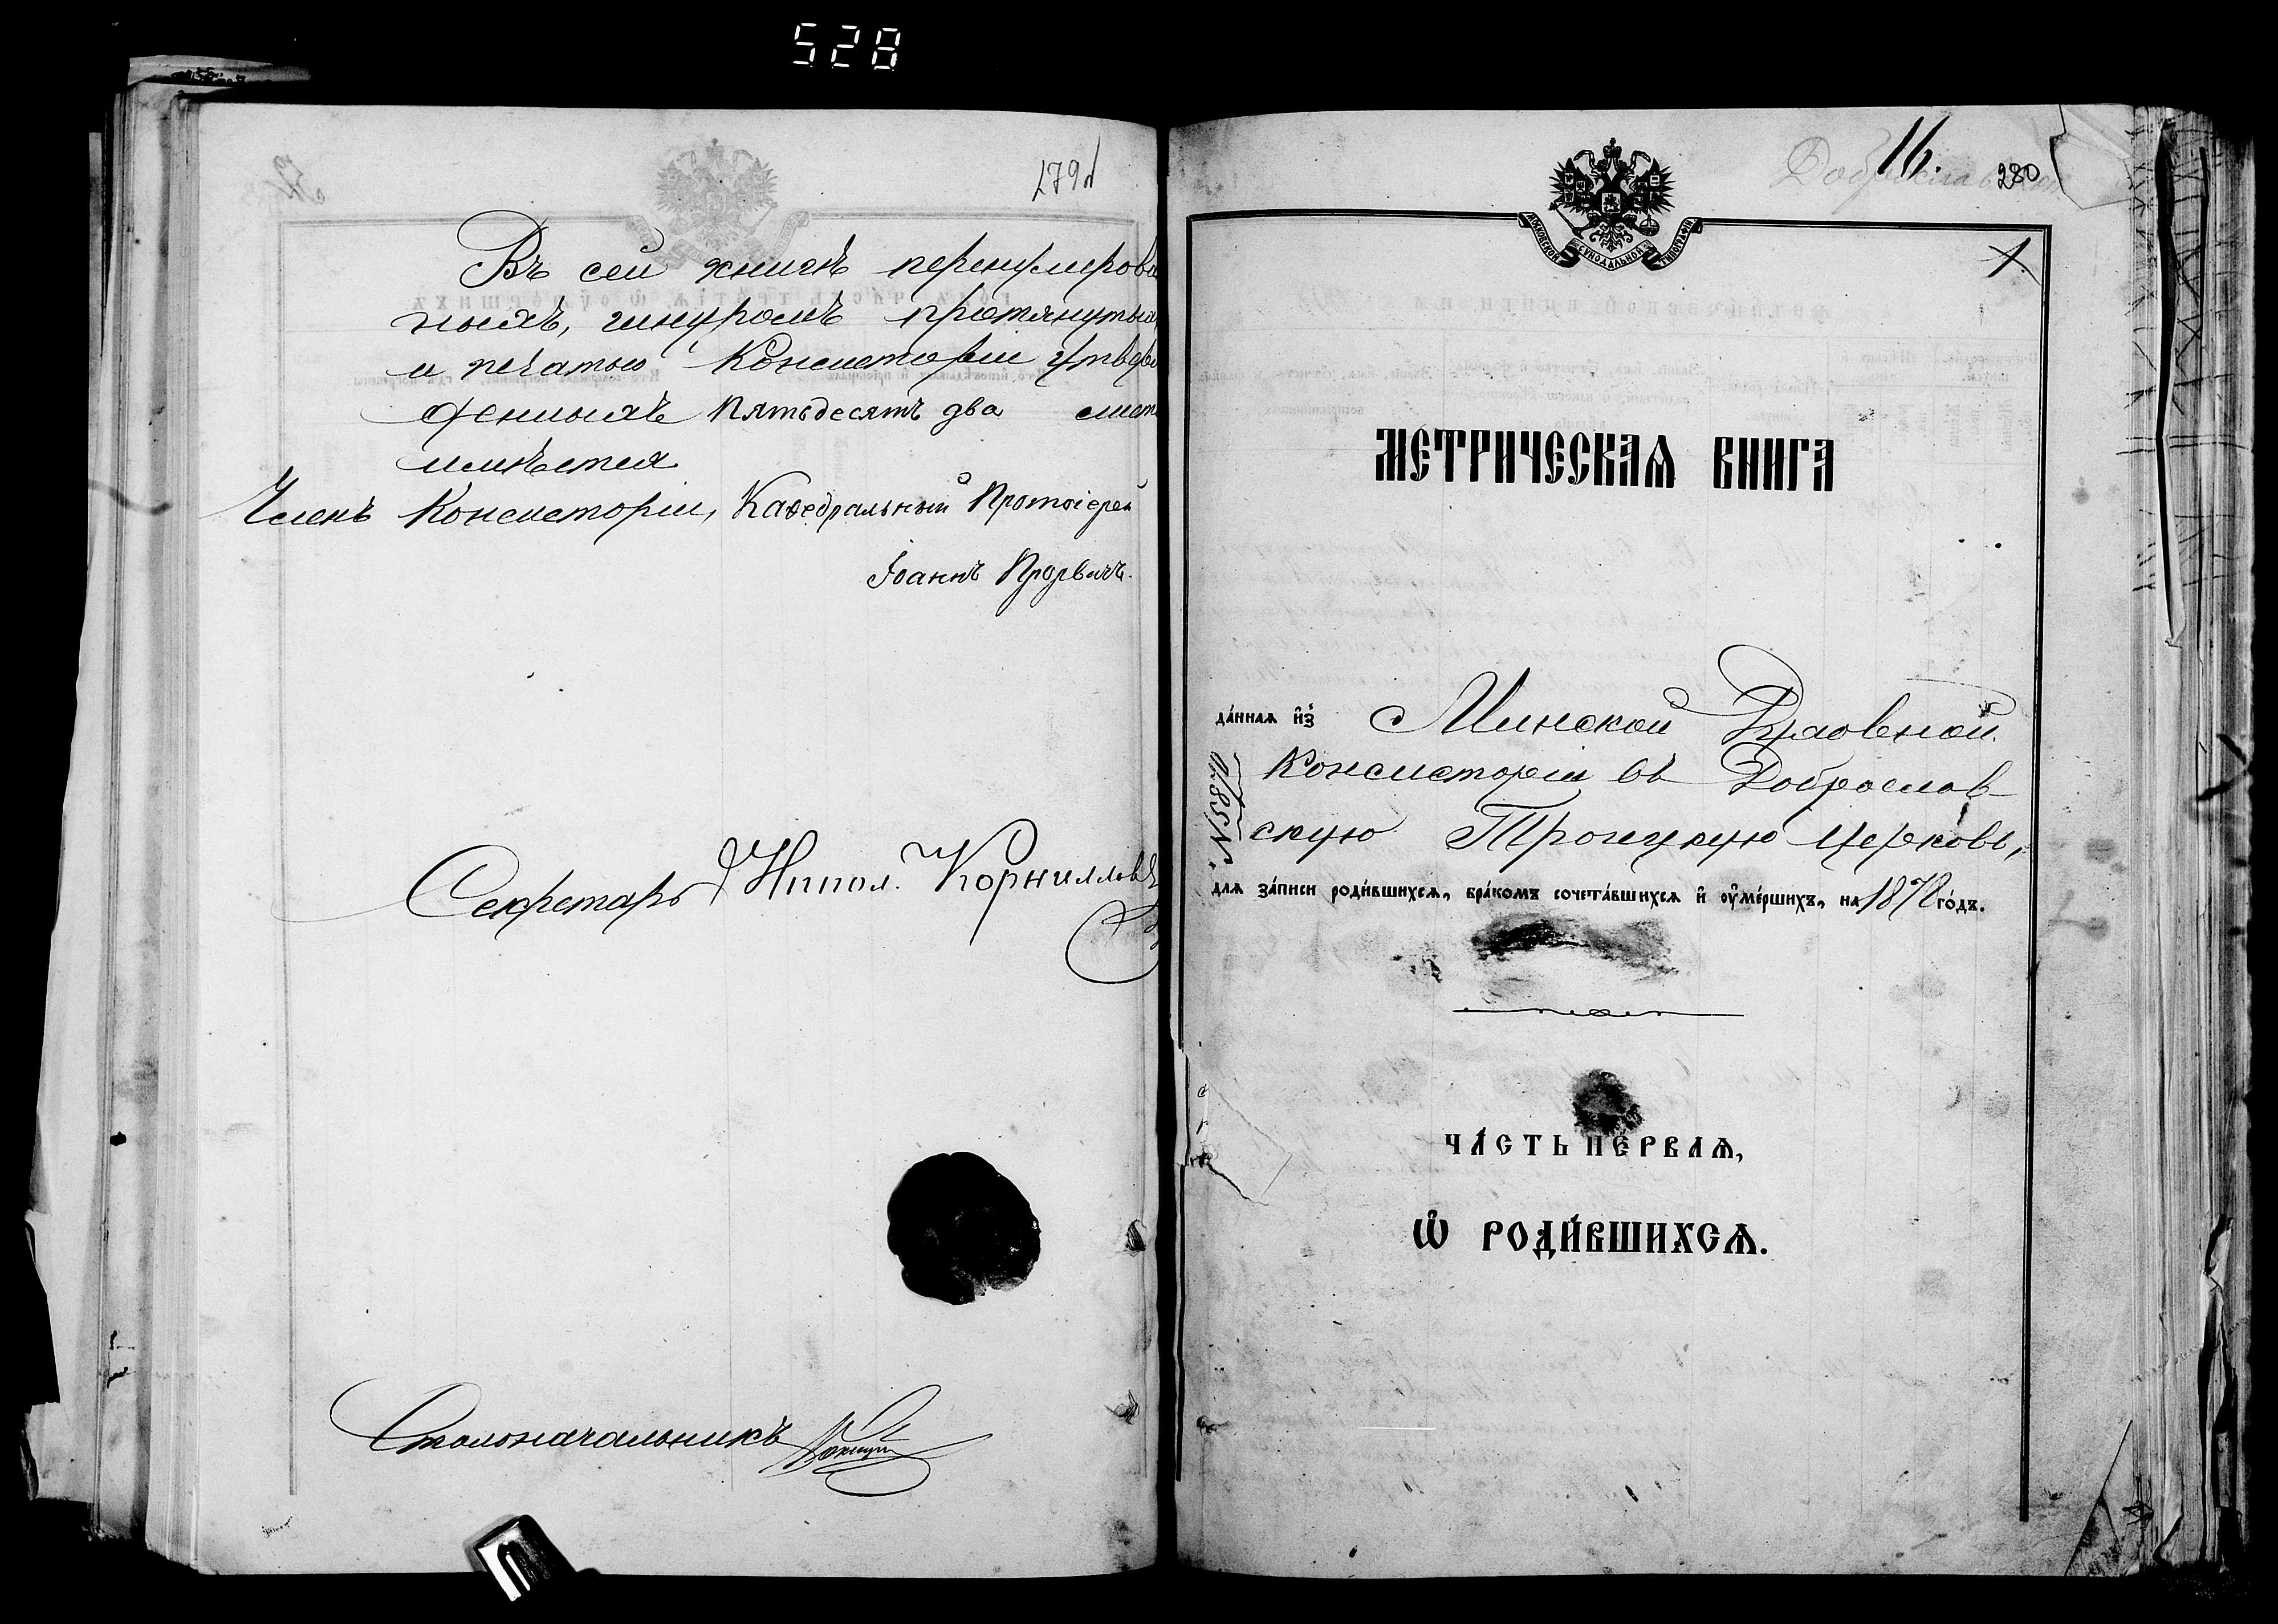 528
279
Въ сей книгѣ перенумерован
ныхъ, шнуромъ протянутыхъ
и печатью Консисторіи утверж
денныхъ Пятьдесятъ два лист
имѣется
Членъ Консисторіи, Каѳедральный Протоіерей
Іоаннъ
Секретарь Иппол.
Столоначальникъ
16.
280
1.
МОСКОВСКОЙ СѴНОДАЛЬНОЙ ТИПОГРАФІИ
МЕТРИЧЕСКАѦ КНИГА
да́ннаѧ и҆з̾ Минской Духовной
Консисторіи въ Доброслав-
скую Троицкую церковь,
длѧ за́писи роди́вшихсѧ, бра́комъ сочета́вшихсѧ и҆ оу҆ме́ршихъ, на 1872 го́дъ.
ЧА́СТЬ ПЕ́РВАѦ,
Ѽ РОДИ́ВШИХСѦ.